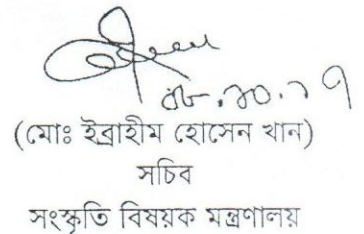 ০৮.১০.১৭
(মোঃ ইব্রাহীম হোসেন খান)
সচিব
সংস্কৃতি বিষয়ক মন্ত্রণালয়